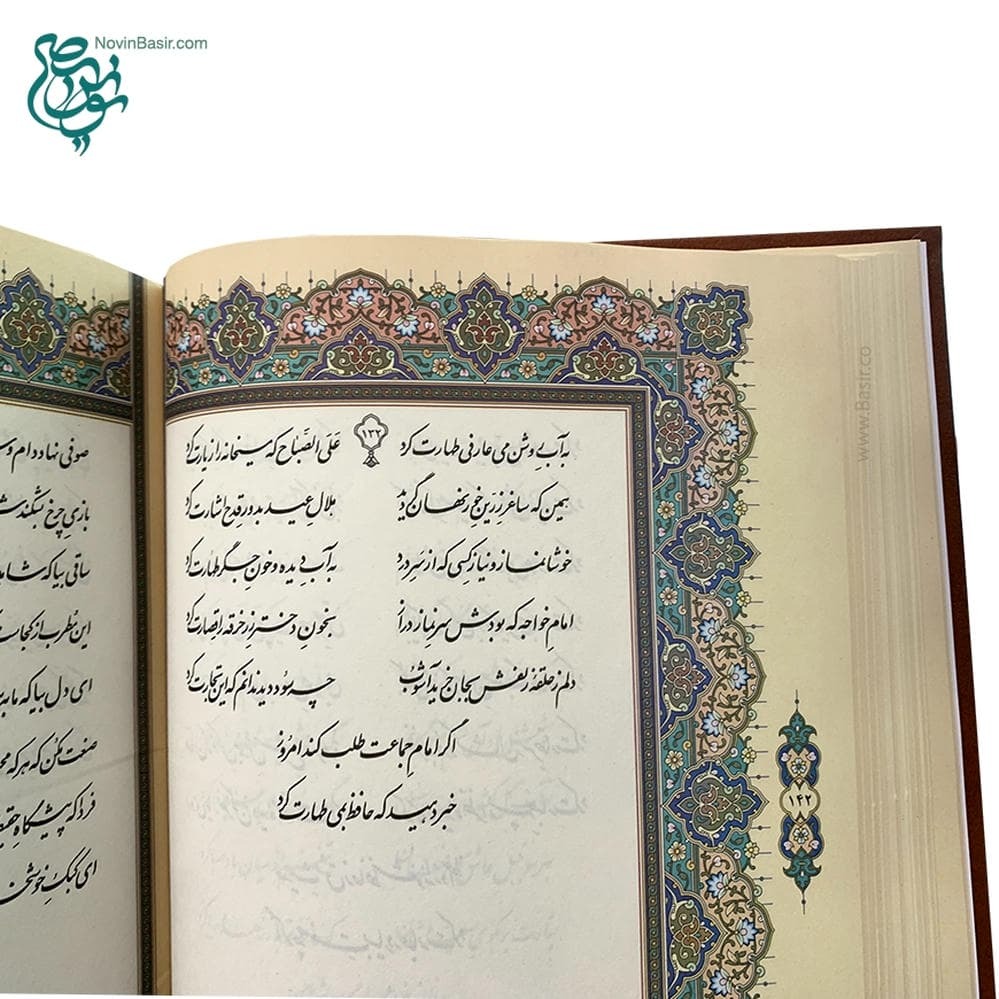 NovinBasir.com
۱۳۲
به آبِ روشنِ می عارفی طهارت کرد عَلَی الصَّباح که میخانه را زیارت کرد
همین که ساغرِ زرّینِ خور نهان گردید هلالِ عید به دورِ قدح اشارت کرد
خوشا نماز و نیازِ کسی که از سرِ درد به آبِ دیده و خونِ جگر طهارت کرد
امامِ خواجه که بودش سرِ نمازِ دراز بخونِ دخترِ رز خرقه را قصارت کرد
دلم ز حلقهٔ زلفش بجان خرید آشوب چه سود دید ندانم که این تجارت کرد
اگر امامِ جماعت طلب کند امروز
خبر دهید که حافظ بمی طهارت کرد
۱۴۲
www.Basir.co
صوفی نهاد دام و
بازیِ چرخ بشکندش
ساقی بیا که
این مُطرب از کجاست
ای دل بیا که ما
صنعت مکن که هر که
فردا که پیشگاهِ
ای کبکِ